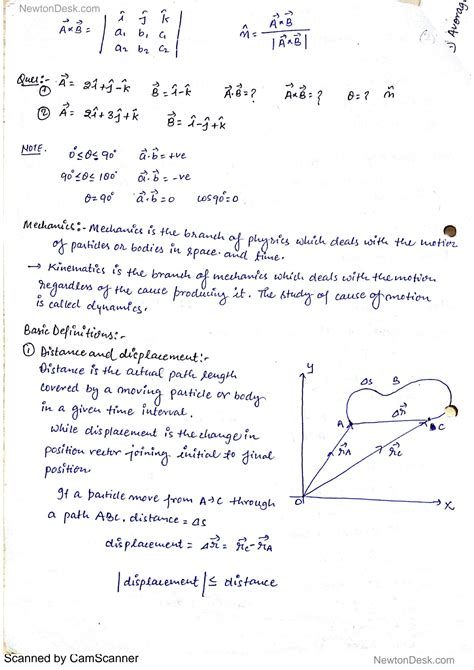 NewtonDesk.com
NewtonDesk.com
A⃗×B⃗ = | î ĵ k̂ |
| a₁ b₁ c₁ |
| a₂ b₂ c₂ |
n̂ = A⃗×B⃗ / |A⃗×B⃗|
1) Averag
Ques:-
① A⃗ = 2î+ĵ-k̂ B⃗ = î-k̂ A⃗·B⃗=? A⃗×B⃗=? θ=? n̂
② A⃗ = 2î+3ĵ+k̂ B⃗ = î-ĵ+k̂
NOTE.
0°≤θ≤90° a⃗·b⃗ = +ve
90°≤θ≤180° a⃗·b⃗ = -ve
θ=90° a⃗·b⃗ = 0 cos90°=0
Mechanics:- Mechanics is the branch of physics which deals with the motion
of particles or bodies in space and time.
→ Kinematics is the branch of mechanics which deals with the motion
regardless of the cause producing it. The study of cause of motion
is called dynamics.
Basic Definitions:-
① Distance and displacement:-
Distance is the actual path length
covered by a moving particle or body
in a given time interval.
while displacement is the change in
position vector joining initial to final
position.
If a particle move from A→C through
a path ABC. distance = Δs
displacement = Δr⃗ = r⃗C-r⃗A
|displacement| ≤ distance
Y
Δs B
Δr⃗
A
C
r⃗A
r⃗C
O
X
Scanned by CamScanner
NewtonDesk.com